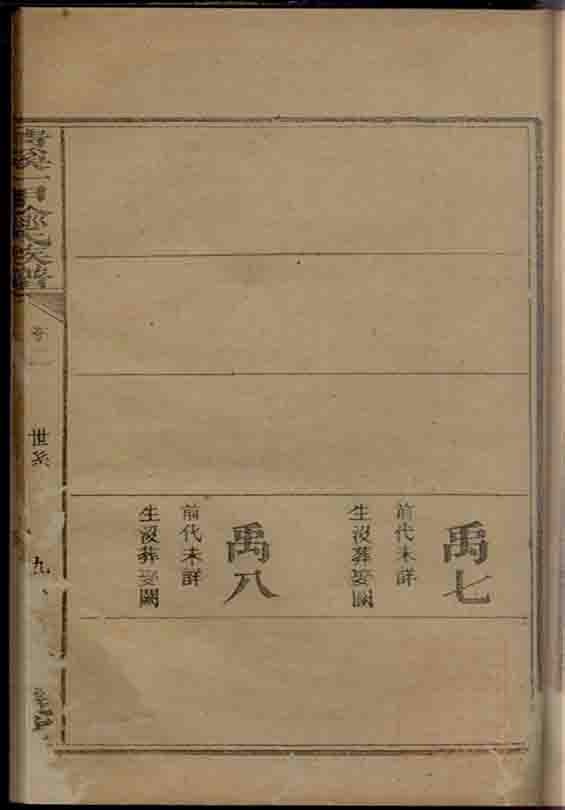 禹七
前代未詳
生沒葬娶闕
禹八
前代未詳
生沒葬娶闕
一甲
氏族譜
卷二
世系
九